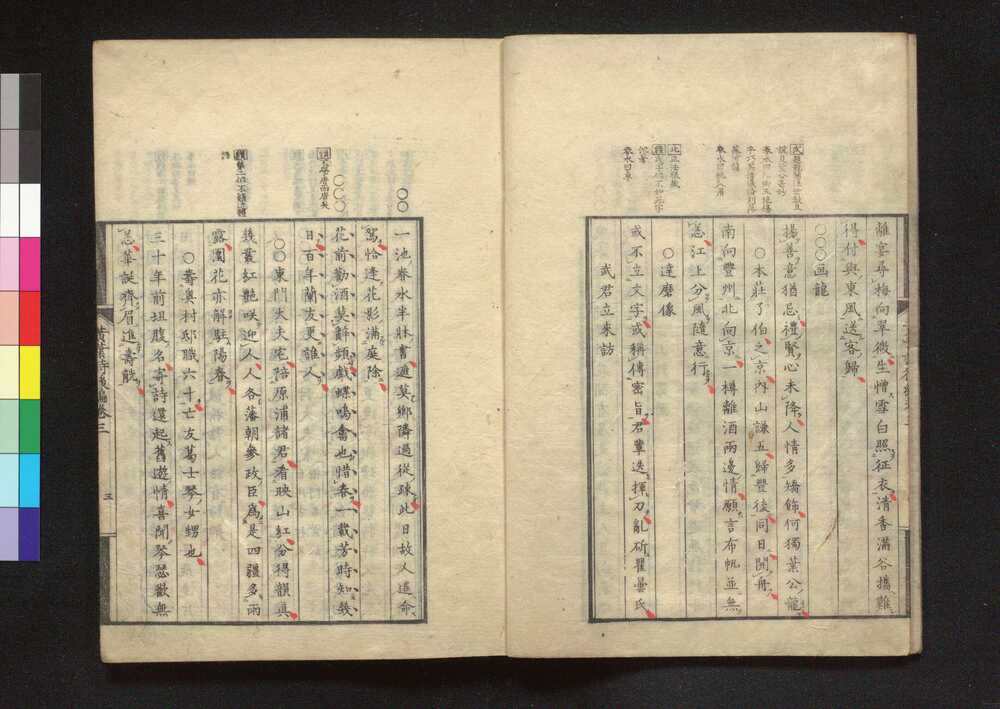 離宴尋梅向翠微生憎雪白照征衣清香滿谷攜難
得付與東風送客歸
○○○画龍
揚善意猶忌禮賢心未降人情多矯餙何獨葉公龍
○本莊了伯之京内山謙五歸豐後同日開舟
南向豐州北向京一樽離酒兩邊情願言布帆並無
恙江上分風隨意行
○達磨像
或不立文字或稱傳密旨君輩迭揮刀亂斫瞿曇氏
武君立來訪
○○
一池春水半牀書邇莫鄉隣過從疎此日故人遙命
駕恰逢花影滿庭除
○○○
花前勸酒莫辭頻戲蝶鳴禽也惜春一歲芳時知幾
日百年蘭友更誰人
○○東門大夫宅陪原浦諸君看映山紅分得韻真
幾叢紅艷咲迎人人各藩朝參政臣為是四疆多雨
露園花亦解駐陽春
○壽奥村邸職六十亡友葛士琴女甥也
三十年前坦腹名寄詩還起舊遊情喜聞琴瑟歡無
恙華誕齊眉進壽觥
黄葉詩後編卷三
三